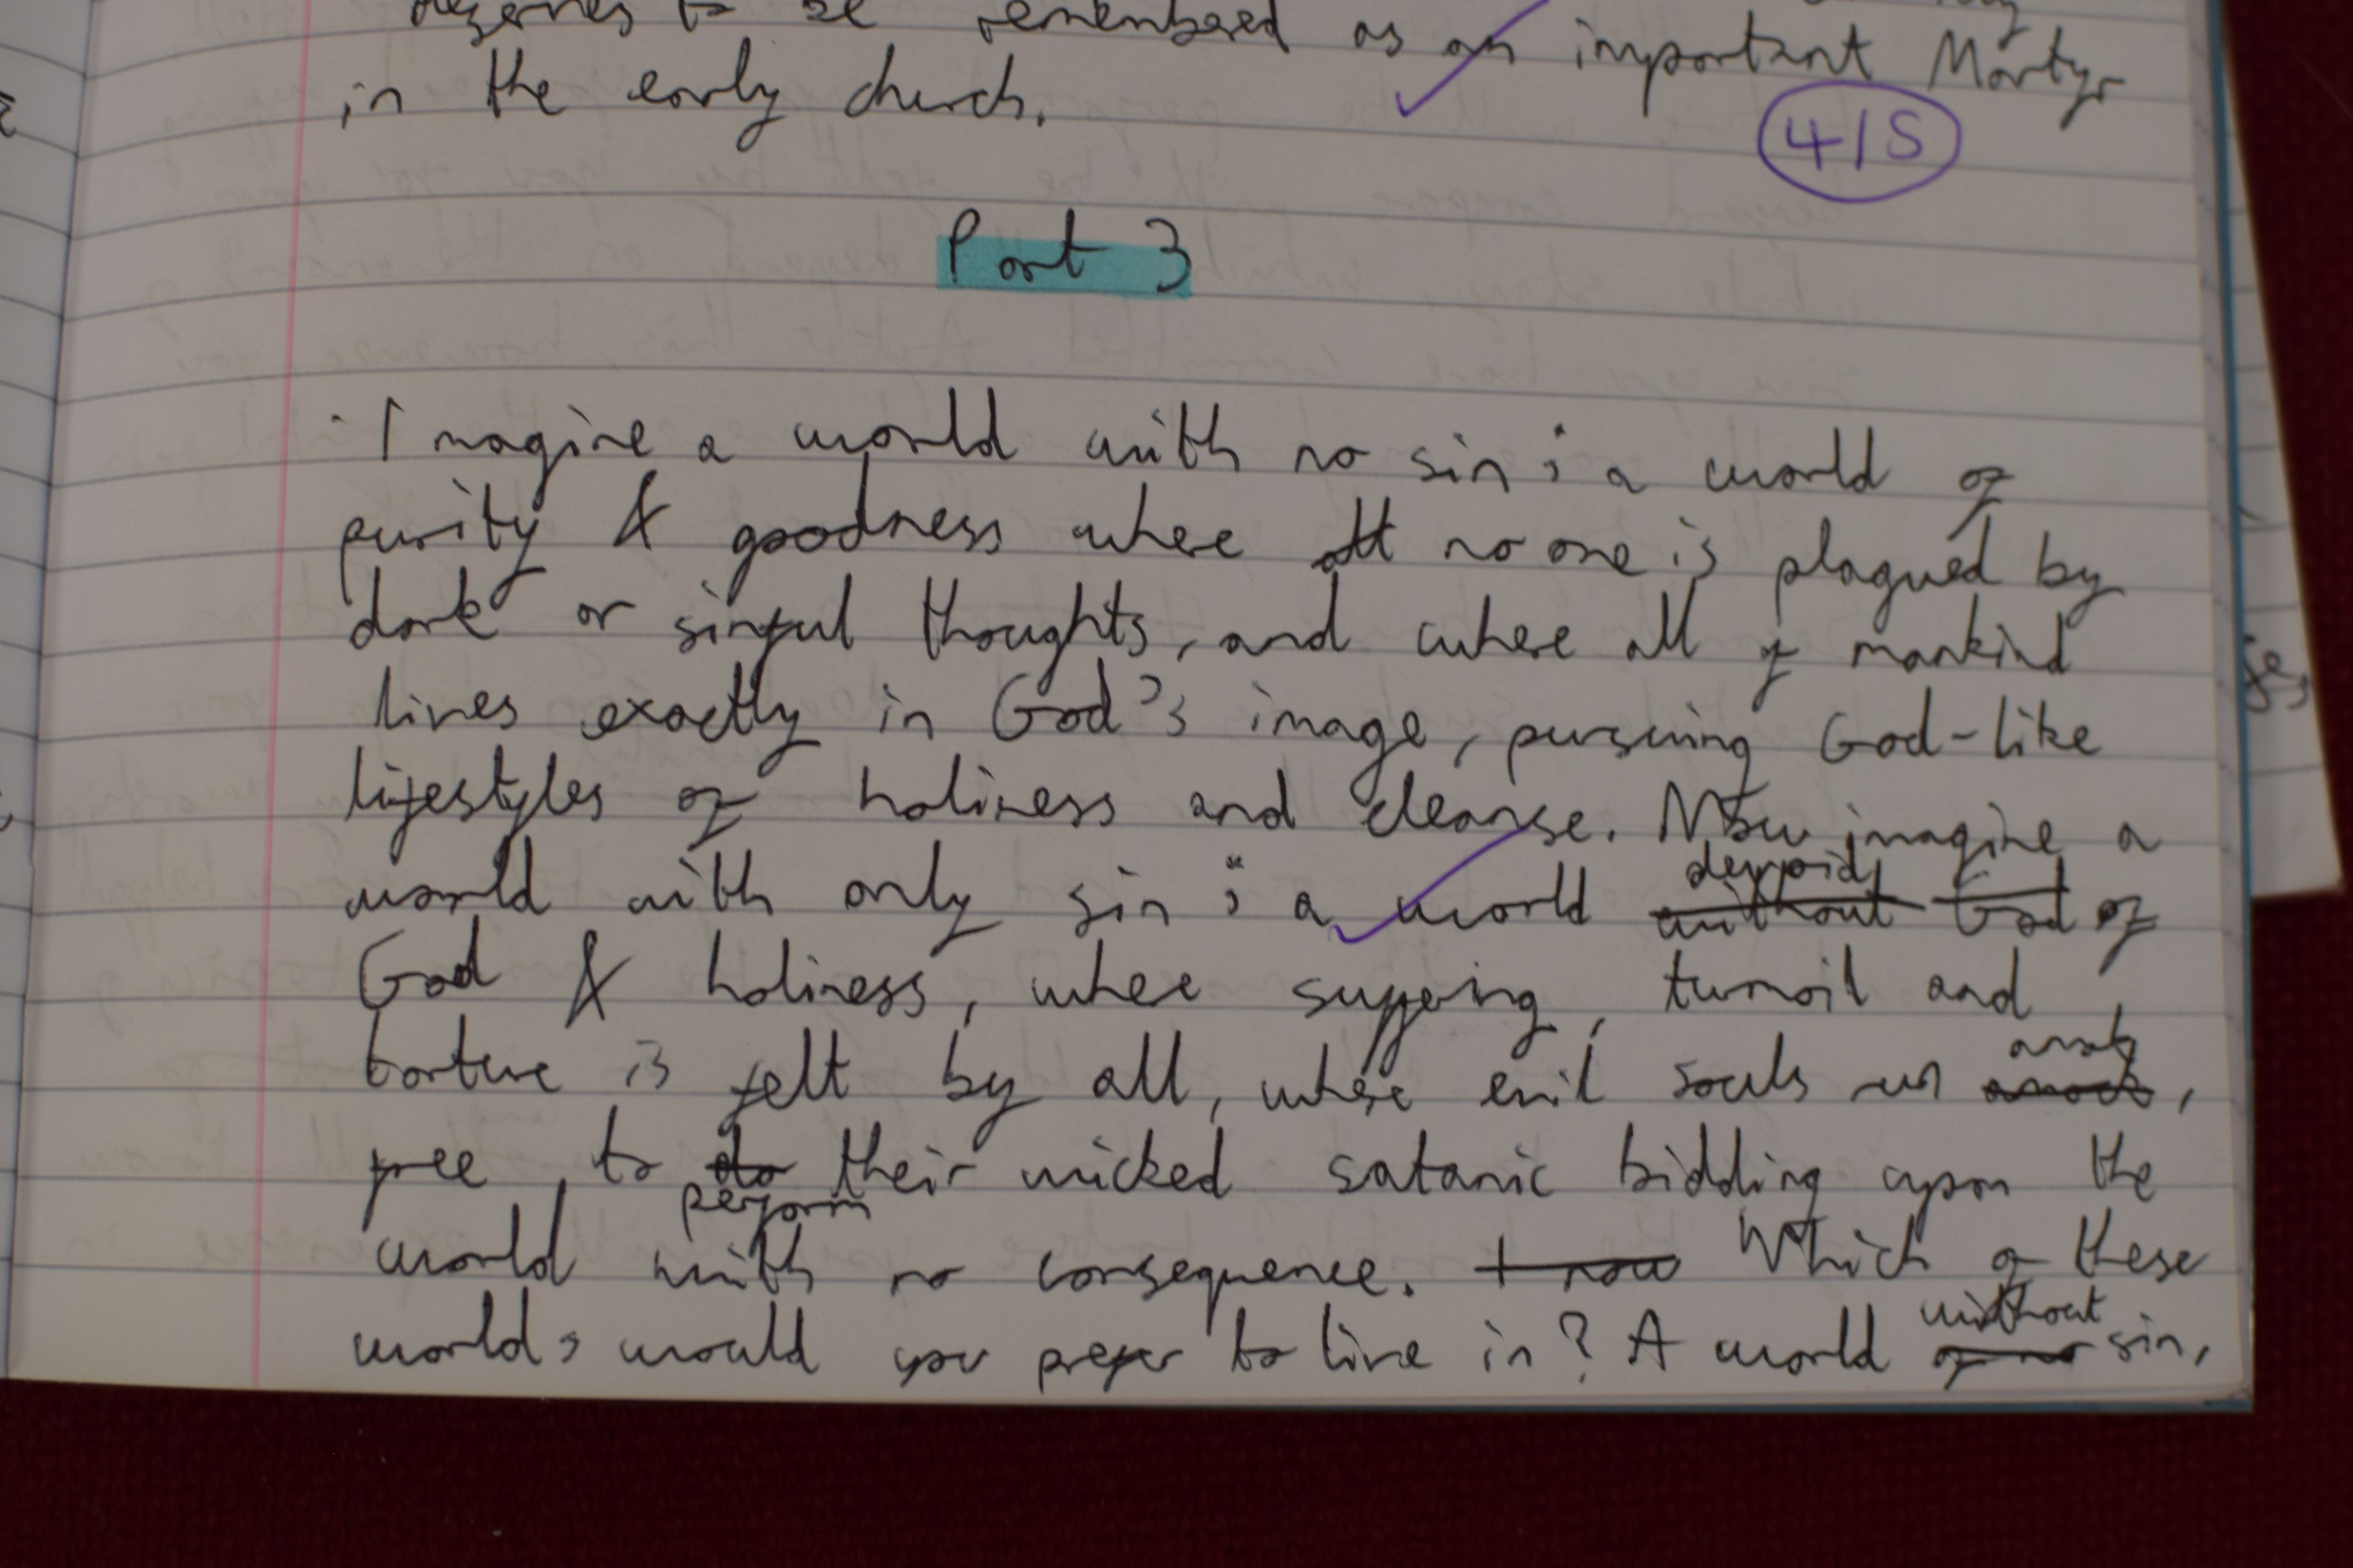 deserves to be remembered as an important Martyr
in the early church.
4/5
Part 3
Imagine a world with no sin; a world of
purity & goodness where no one is plagued by
dark or sinful thoughts, and where all of mankind
lives exactly in God's image, pursuing God-like
lifestyles of holiness and cleanse. Now imagine a
world with only sin; a world devoid of
without God
God & holiness, where suffering, turmoil and
torture is felt by all, where evil souls run
free to do their wicked satanic bidding upon the
perform
world with no consequence. Which of these
worlds would you prefer to live in? A world without sin,